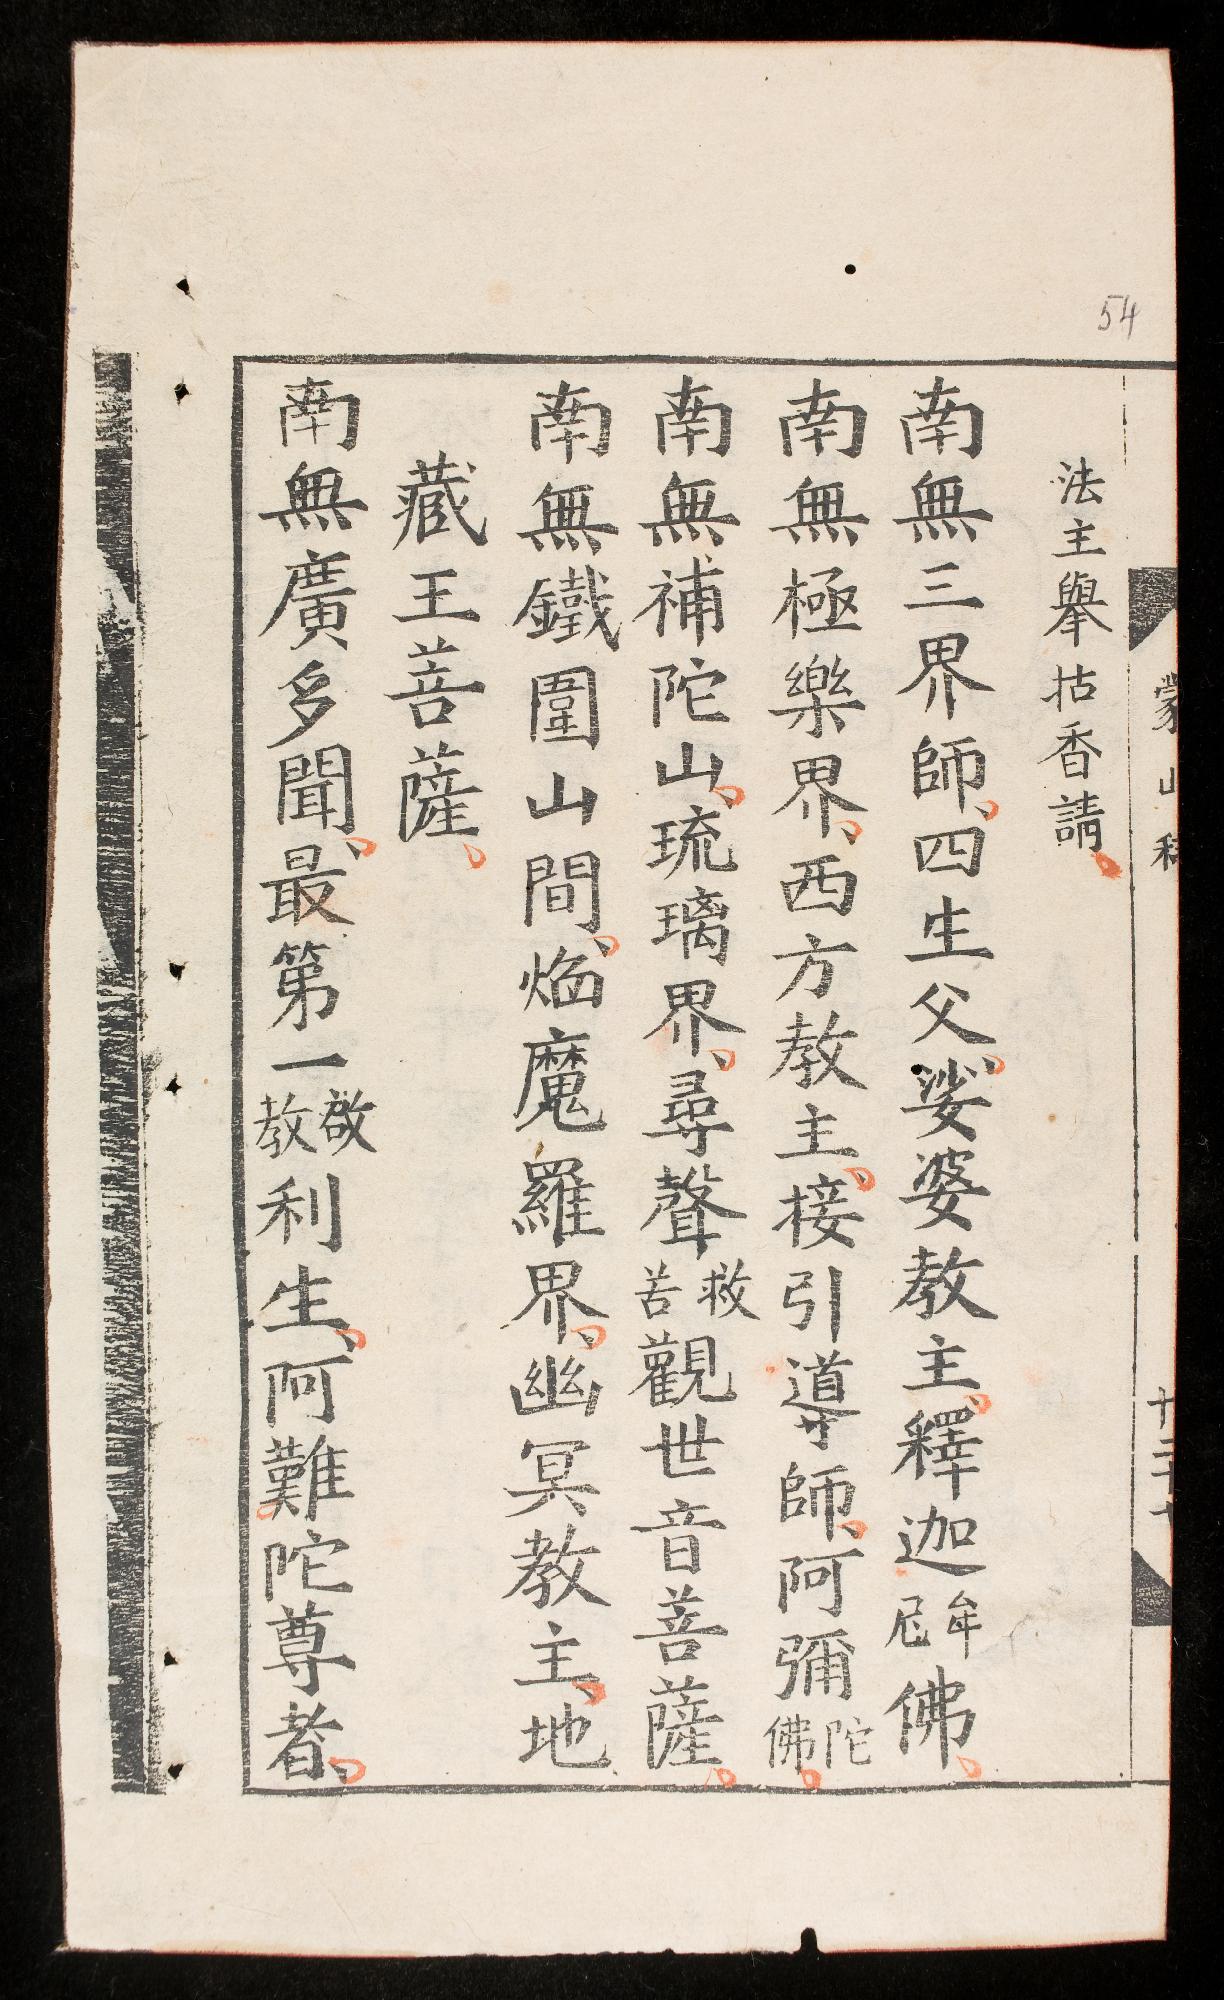 54
法主舉拈香請
南無三界師四生父娑婆教主釋迦牟尼佛
南無極樂界西方教主接引導師阿彌陀佛
南無補陀山琉璃界尋聲救苦觀世音菩薩
南無鐵圍山間焰魔羅界幽冥教主地
藏王菩薩
南無廣多聞最第一啟教利生阿難陀尊者